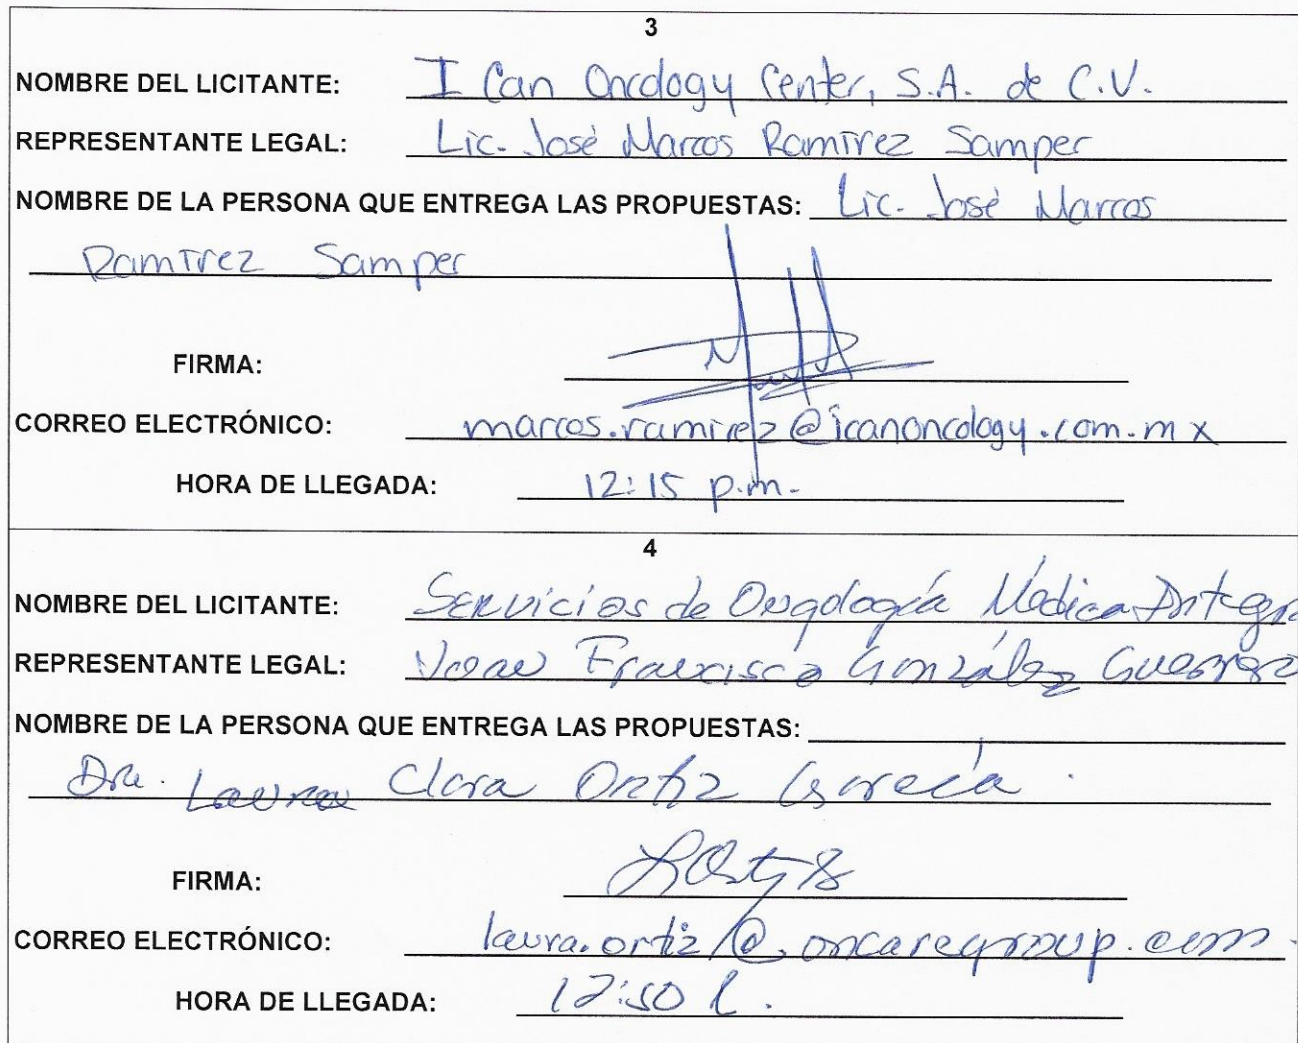 3
NOMBRE DEL LICITANTE: I Can Oncology Center, S.A. de C.V.
REPRESENTANTE LEGAL: Lic. José Marcos Ramírez Samper
NOMBRE DE LA PERSONA QUE ENTREGA LAS PROPUESTAS: Lic. José Marcos
Ramírez Samper
FIRMA:
CORREO ELECTRÓNICO: marcos.ramirez@icanoncology.com.mx
HORA DE LLEGADA: 12:15 p.m.
4
NOMBRE DEL LICITANTE: Servicios de Médica Integra
REPRESENTANTE LEGAL: Francisco González Guerrero
NOMBRE DE LA PERSONA QUE ENTREGA LAS PROPUESTAS:
Dra. Laura Clara Ortiz García.
FIRMA:
CORREO ELECTRÓNICO: laura.ortiz@oncaregroup.com
HORA DE LLEGADA: